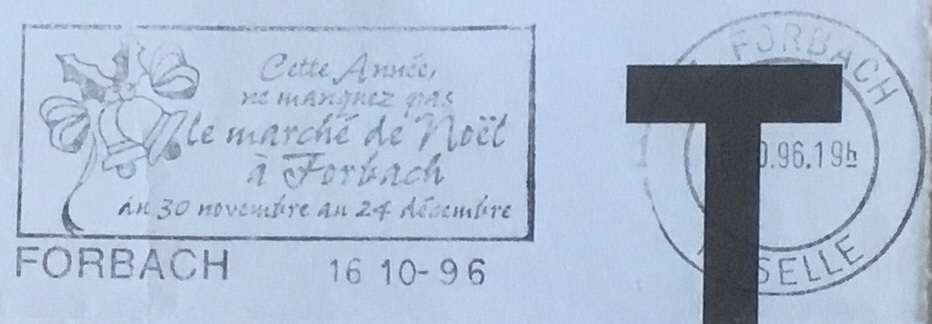 Cette Année,
ne manquez pas
le marché de Noël
à Forbach
du 30 novembre au 24 décembre
FORBACH 16 10-96
FORBACH
0.96.19h
SELLE
T